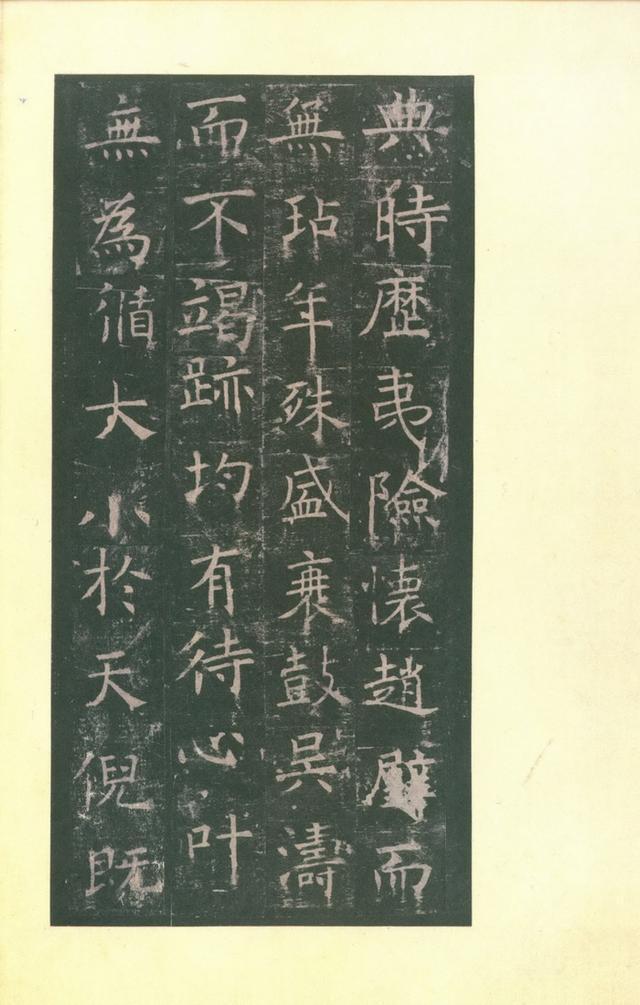 典時歷夷險懷趙璧而
無玷年殊盛衰鼓吴濤
而不竭跡均有待心叶
無為循大小於天倪既